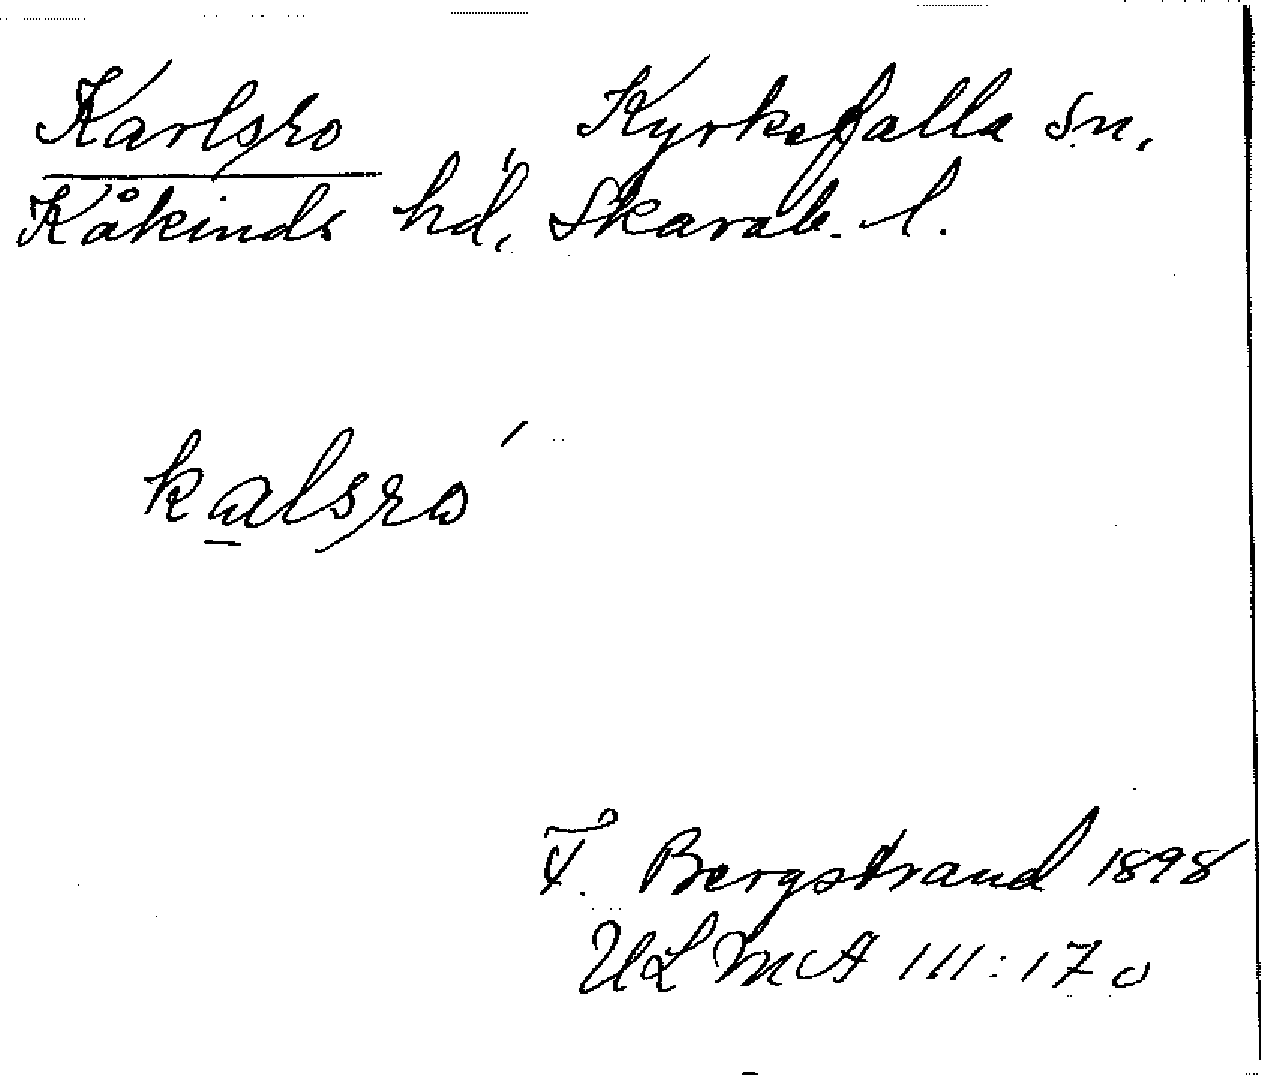 Karlsro Kyrkefalla sn,
Kåkinds hd, Skarab. l.
kalsro ́
F. Bergstrand 1898
ULMA 111:170